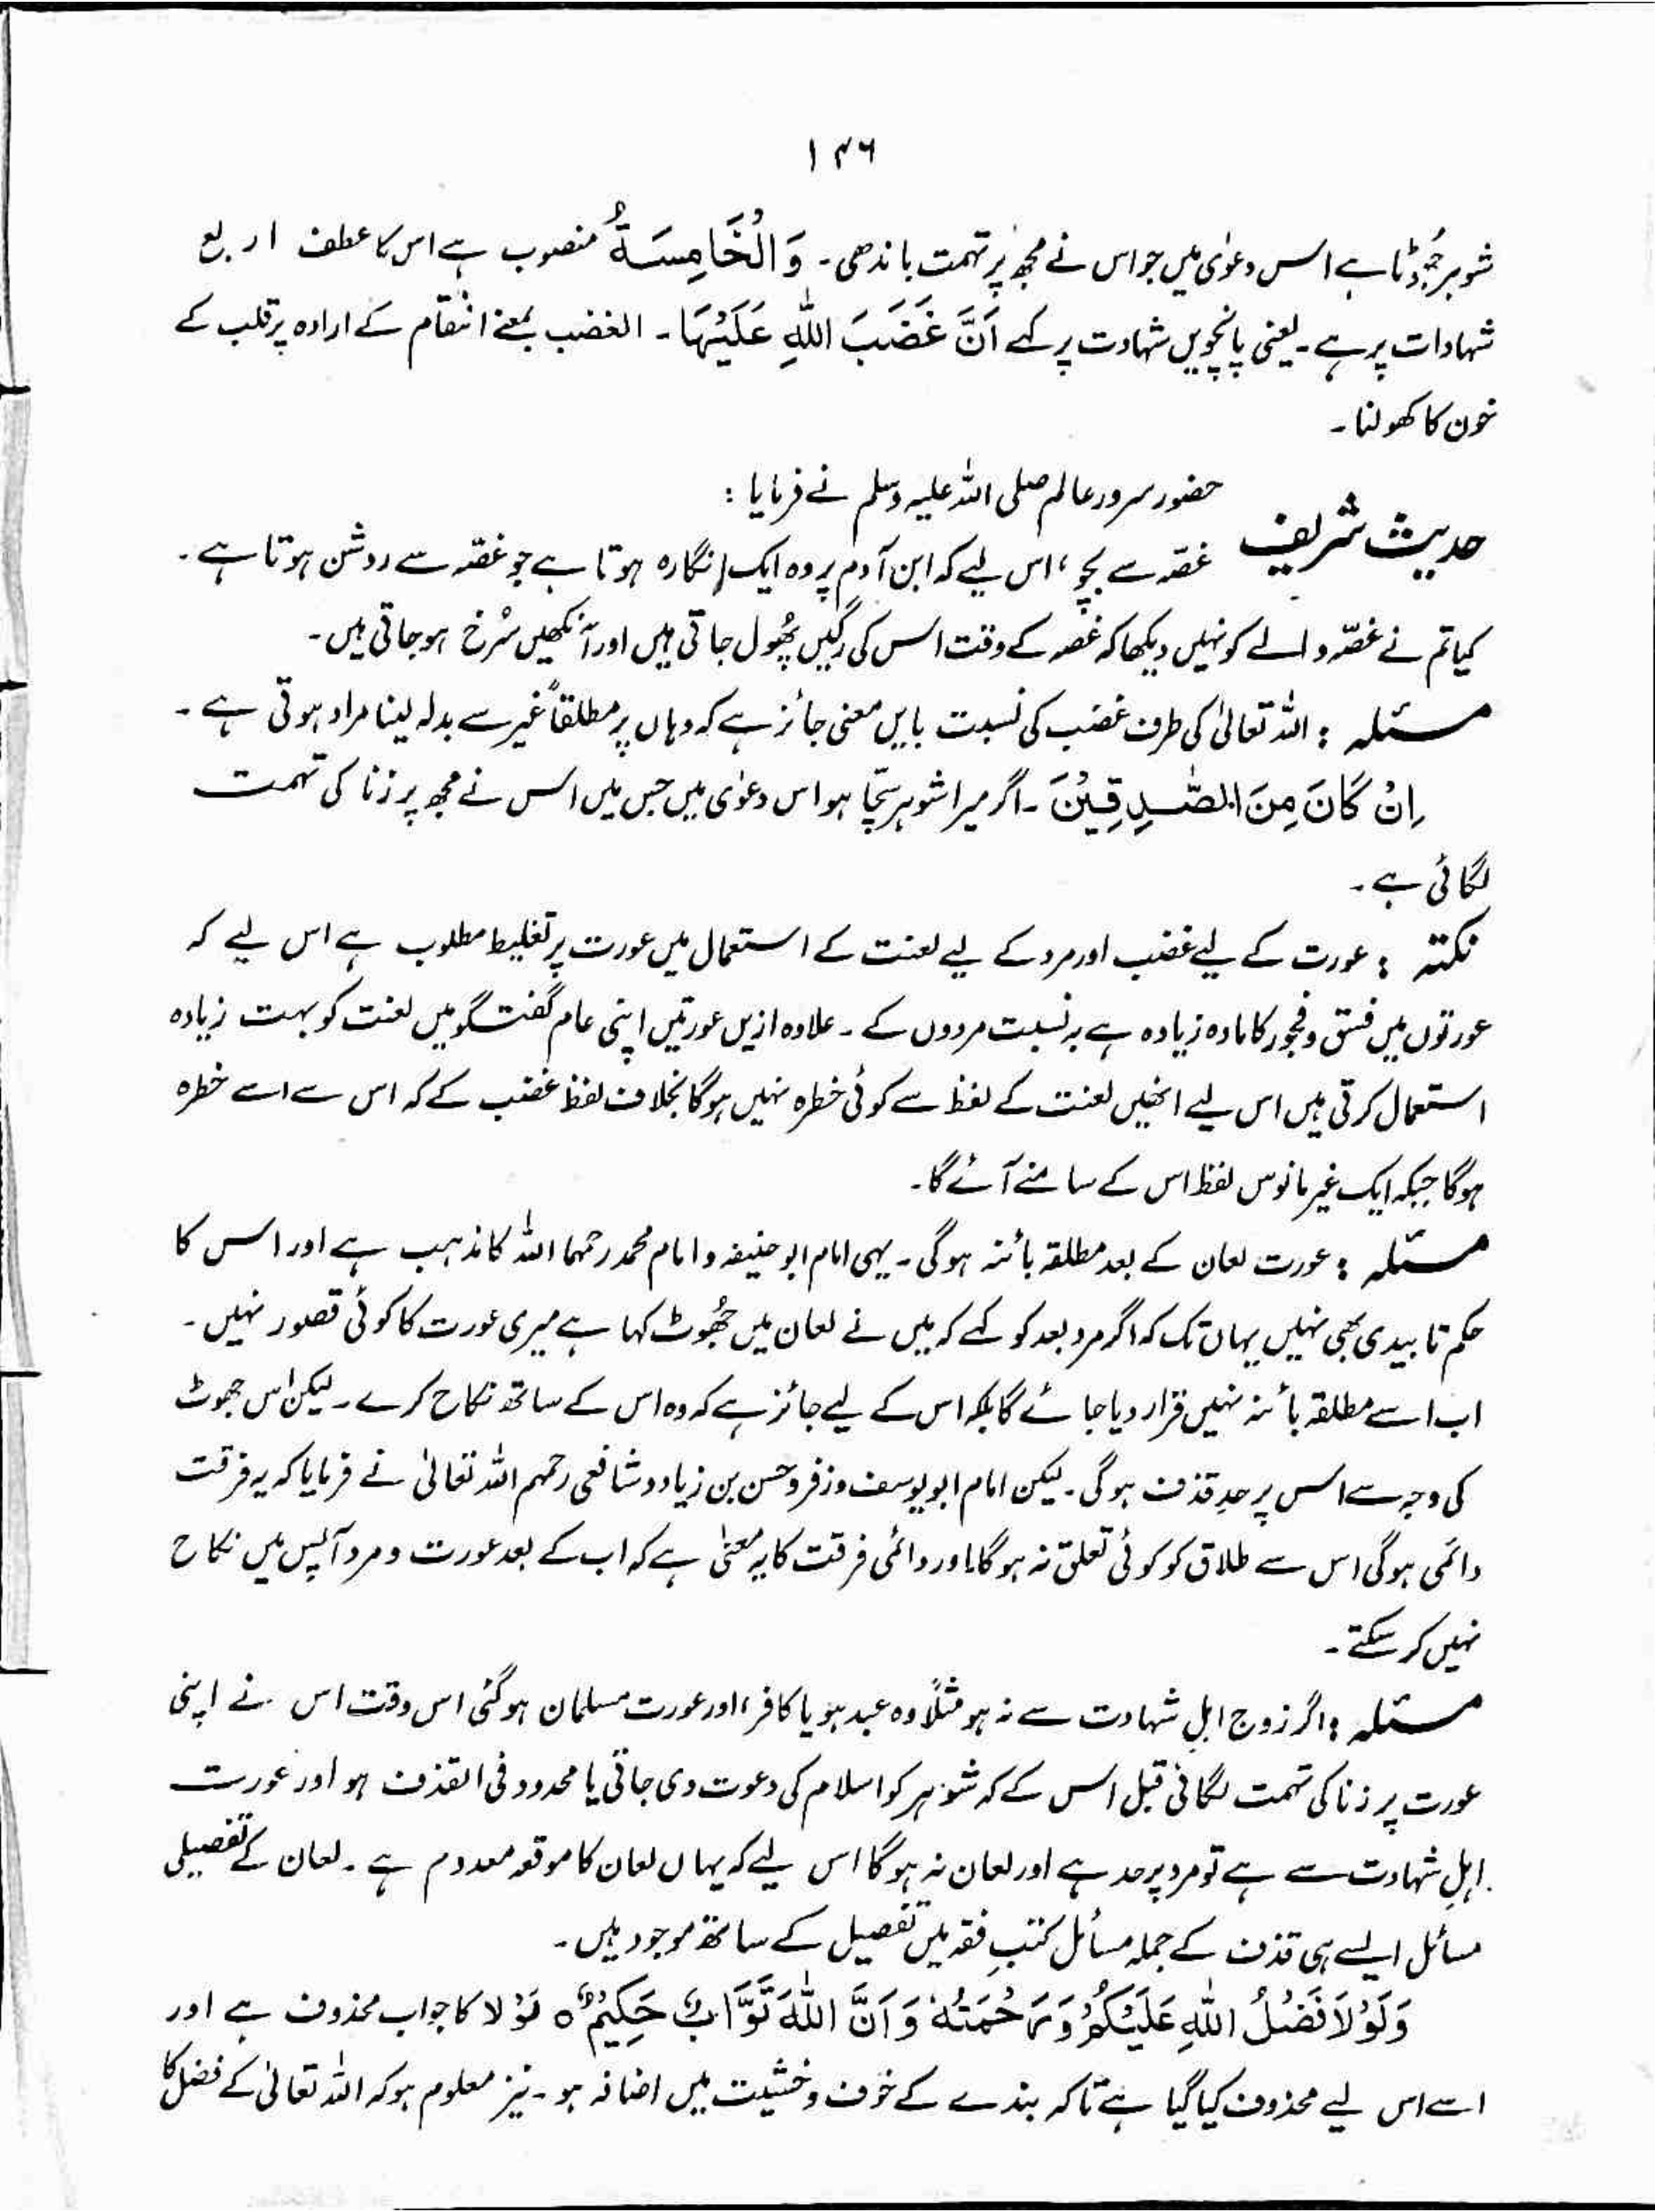 ۱۴۶
شوہر جُھوٹا ہے اس دعوٰی میں جو اس نے مجھ پر تہمت باندھی۔ وَالْخَامِسَةُ منصوب ہے اس کا عطف اربع
شہادات پر ہے۔ یعنی پانچویں شہادت پر کہے اَنَّ غَضَبَ اللّٰهِ عَلَيْهَا۔ الغضب بمعنے انتقام کے ارادہ پر قلب کے
خون کا کھولنا۔
حضور سرور عالم صلی اللہ علیہ وسلم نے فرمایا :
حدیث شریف غصّہ سے بچو، اس لیے کہ ابن آدم پر وہ ایک انگارہ ہوتا ہے جو غصّہ سے روشن ہوتا ہے۔
کیا تم نے غصّہ والے کو نہیں دیکھا کہ غصہ کے وقت اس کی رگیں پھُول جاتی ہیں اور آنکھیں سُرخ ہو جاتی ہیں۔
مسئلہ : اللہ تعالیٰ کی طرف غضب کی نسبت بایں معنی جائز ہے کہ وہاں پر مطلقاً غیر سے بدلہ لینا مراد ہوتی ہے۔
اِنْ كَانَ مِنَ الصّٰدِقِيْنَ ۔ اگر میرا شوہر سچّا ہو اس دعوٰی میں جس میں اس نے مجھ پر زنا کی تہمت
لگائی ہے۔
نکتہ : عورت کے لیے غضب اور مرد کے لیے لعنت کے استعمال میں عورت پر تغلیظ مطلوب ہے اس لیے کہ
عورتوں میں فسق و فجور کا مادہ زیادہ ہے بہ نسبت مردوں کے۔ علاوہ ازیں عورتیں اپنی عام گفتگو میں لعنت کو بہت زیادہ
استعمال کرتی ہیں اس لیے انھیں لعنت کے لفظ سے کوئی خطرہ نہیں ہوگا بخلاف لفظ غضب کے کہ اس سے اسے خطرہ
ہوگا جبکہ ایک غیر مانوس لفظ اس کے سامنے آئے گا۔
مسئلہ : عورت لعان کے بعد مطلقہ بائنہ ہوگی۔ یہی امام ابو حنیفہ و امام محمد رحمہما اللہ کا مذہب ہے اور اس کا
حکم تابیدی بھی نہیں یہاں تک کہ اگر مرد بعد کو کہے کہ میں نے لعان میں جُھوٹ کہا ہے میری عورت کا کوئی قصور نہیں۔
اب اسے مطلقہ بائنہ نہیں قرار دیا جائے گا بلکہ اس کے لیے جائز ہے کہ وہ اس کے ساتھ نکاح کرے۔ لیکن اس جھوٹ
کی وجہ سے اس پر حدِ قذف ہوگی۔ لیکن امام ابو یوسف و زفر و حسن بن زیاد و شافعی رحمہم اللہ تعالیٰ نے فرمایا کہ یہ فرقت
دائمی ہوگی اس سے طلاق کو کوئی تعلق نہ ہوگا اور دائمی فرقت کا یہ معنیٰ ہے کہ اب کے بعد عورت و مرد آپس میں نکاح
نہیں کر سکتے۔
مسئلہ : اگر زوج اہلِ شہادت سے نہ ہو مثلًا وہ عبد ہو یا کافر، اور عورت مسلمان ہوگئی اس وقت اس نے اپنی
عورت پر زنا کی تہمت لگائی قبل اس کے کہ شوہر کو اسلام کی دعوت دی جاتی یا محدود فی القذف ہو اور عورت
اہلِ شہادت سے ہے تو مرد پر حد ہے اور لعان نہ ہوگا اس لیے کہ یہاں لعان کا موقعہ معدوم ہے۔ لعان کے تفصیلی
مسائل ایسے ہی قذف کے جملہ مسائل کتبِ فقہ میں تفصیل کے ساتھ موجود ہیں۔
وَلَوْلَا فَضْلُ اللّٰهِ عَلَيْكُمْ وَرَحْمَتُهٗ وَاَنَّ اللّٰهَ تَوَّابٌ حَكِيْمٌ ۝ لَوْلَا کا جواب محذوف ہے اور
اسے اس لیے محذوف کیا گیا ہے تاکہ بندے کے خوف و خشیت میں اضافہ ہو۔ نیز معلوم ہو کہ اللہ تعالیٰ کے فضل کا